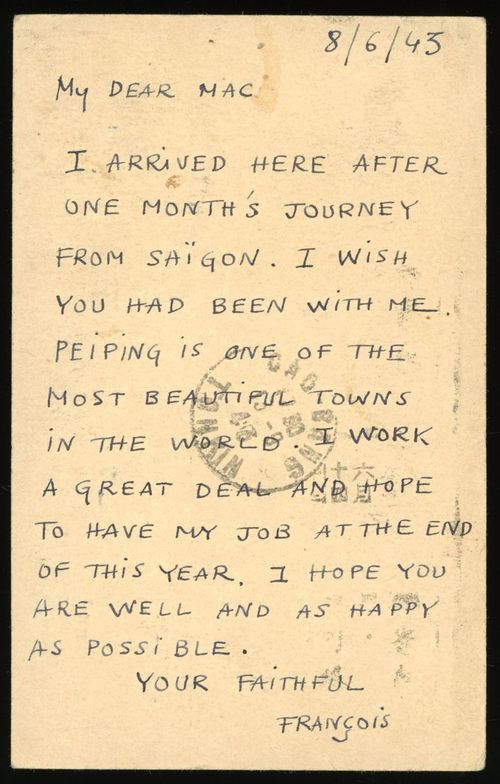 8/6/43
My DEAR MAC
I ARRIVED HERE AFTER
ONE MONTH'S JOURNEY
FROM SAÏGON. I WISH
YOU HAD BEEN WITH ME.
PEIPING IS ONE OF THE
MOST BEAUTIFUL TOWNS
IN THE WORLD. I WORK
A GREAT DEAL AND HOPE
TO HAVE MY JOB AT THE END
OF THIS YEAR. I HOPE YOU
ARE WELL AND AS HAPPY
AS POSSIBLE.
YOUR FAITHFUL
FRANÇOIS
CAOBANG
TONKIN